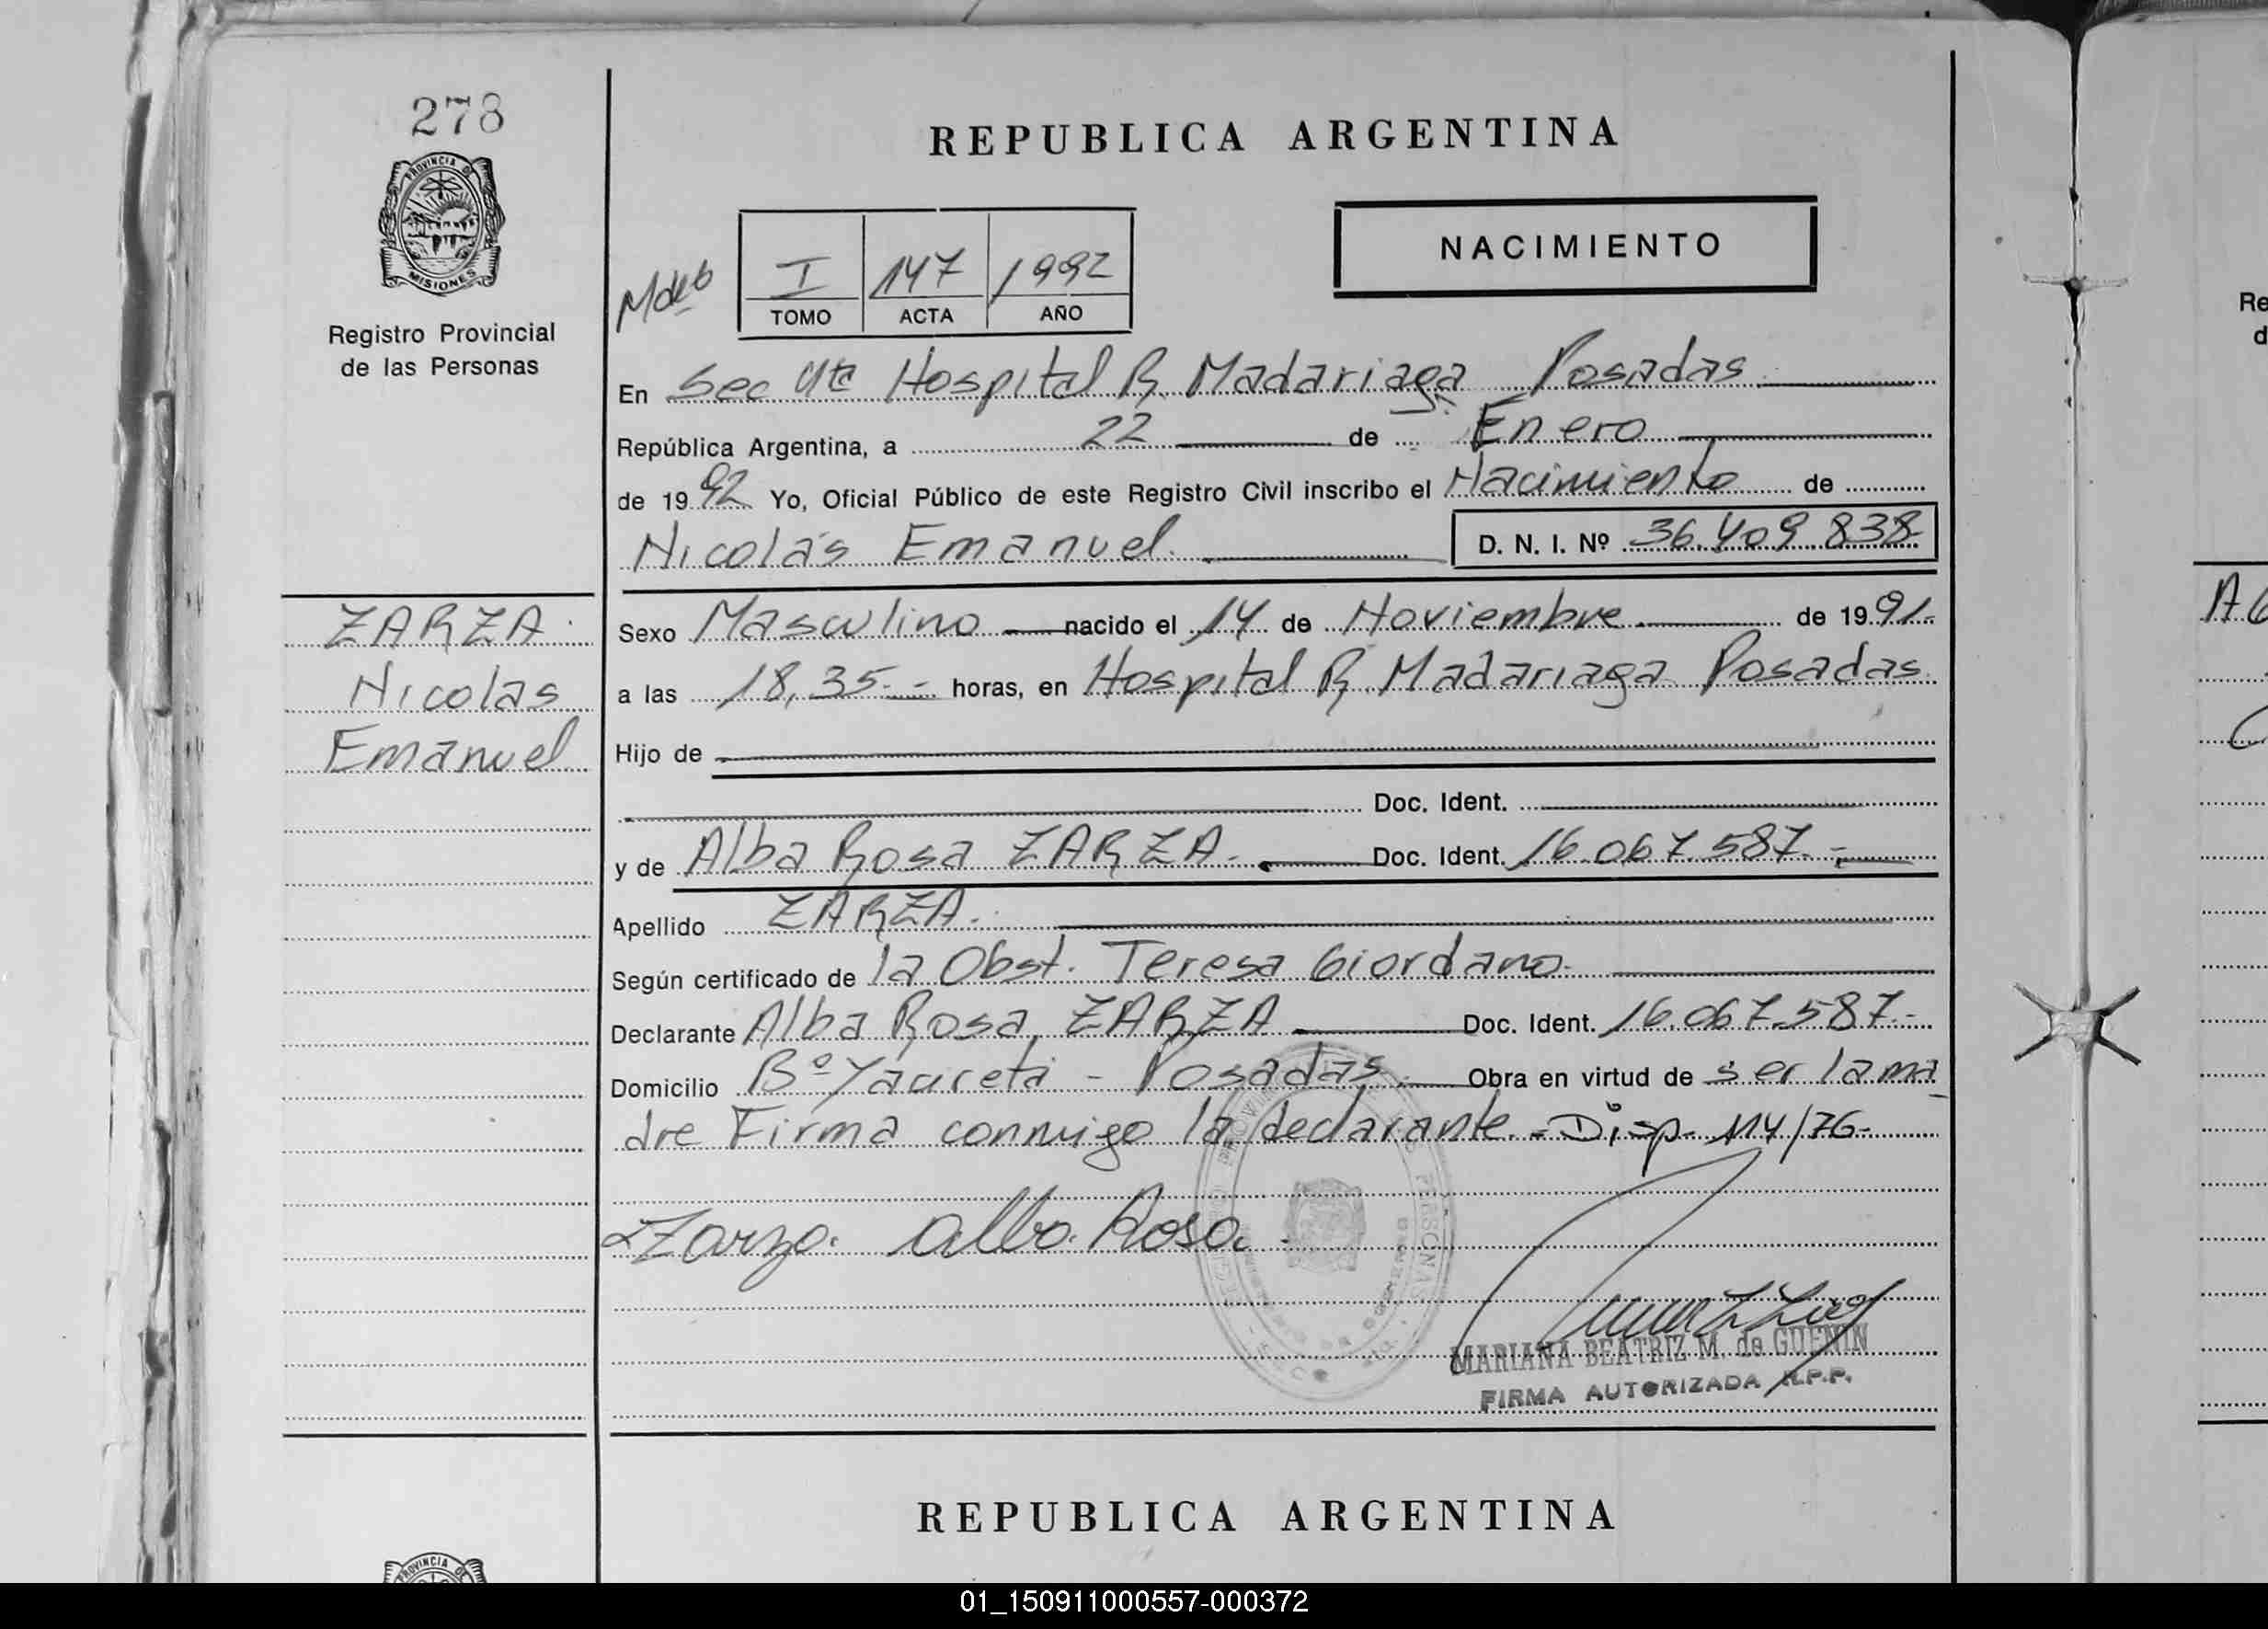 278
REPUBLICA ARGENTINA
PROVINCIA DE
MISIONES
Registro Provincial
de las Personas
I 147 1992
TOMO ACTA AÑO
NACIMIENTO
En Sec Hospital R. Madariaga Posadas
República Argentina, a 22 de Enero
de 1992 Yo, Oficial Público de este Registro Civil inscribo el Nacimiento de
Nicolás Emanuel. D. N. I. Nº 36.409.838
ZARZA
Nicolas
Emanuel
Sexo Masculino nacido el 14 de Noviembre de 1991.
a las 18,35.- horas, en Hospital R. Madariaga Posadas
Hijo de
Doc. Ident.
y de Alba Rosa ZARZA. Doc. Ident. 16.067.587.-
Apellido ZARZA.
Según certificado de la Obst. Teresa Giordano.
Declarante Alba Rosa ZARZA Doc. Ident. 16.067.587.-
Domicilio Bº Yacireta - Posadas. Obra en virtud de ser la ma
dre Firma conmigo la declarante.- Disp. 114/76-
Zarza. Alba. Rosa.
MARIANA BEATRIZ M. de GUENIN
FIRMA AUTORIZADA R.P.P.
REPUBLICA ARGENTINA
PROVINCIA DE
Re
d
01_150911000557-000372